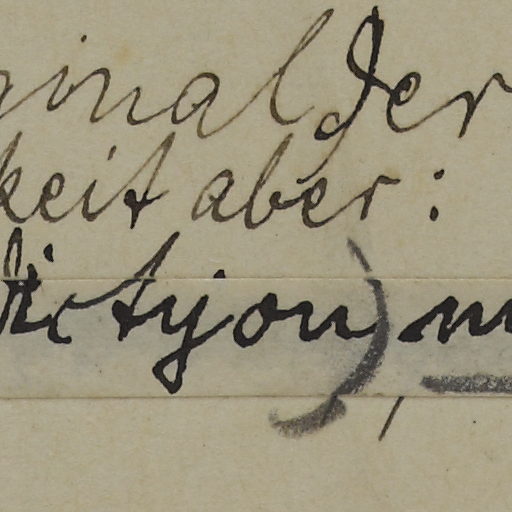 ginal der
keit aber:
Dictyon), m